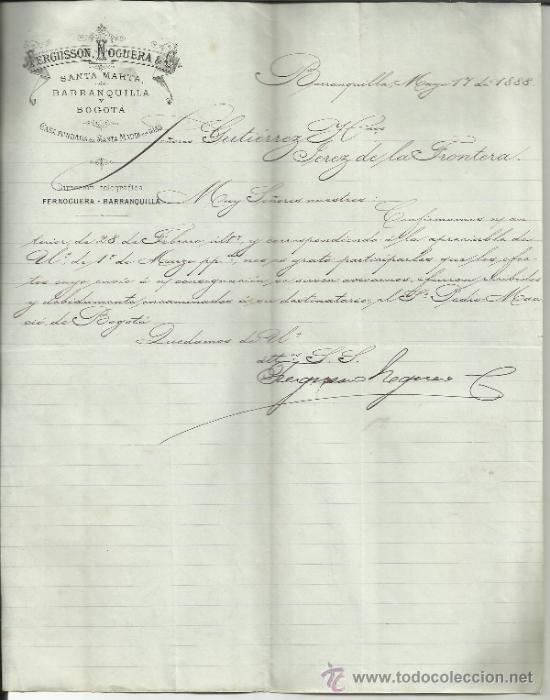 FERGUSSON, NOGUERA & Cª
SANTA MARTA,
BARRANQUILLA
Y
BOGOTÁ
CASA FUNDADA EN SANTA MARTA EN
Barranquilla, Mayo 17 de 1888.
Señores Gutiérrez Hnos
Jerez de la Frontera.
Dirección telegráfica
FERNOGUERA - BARRANQUILLA
Muy Señores nuestros:
Confirmamos n/ an-
terior de 28 de Febrero ultº, y correspondiendo á la apreciable de
Uds. de 1º de Marzo ppdo, nos es grato participarles que los efec-
tos cuyo envío á n/ consignación se sirven avisarnos, fueron recibidos
y debidamente encaminados á su destinatario, el Sr. Pedro
de Bogotá
Quedamos de Uds.
attos S. S.
Fergusson Noguera C
www.todocoleccion.net